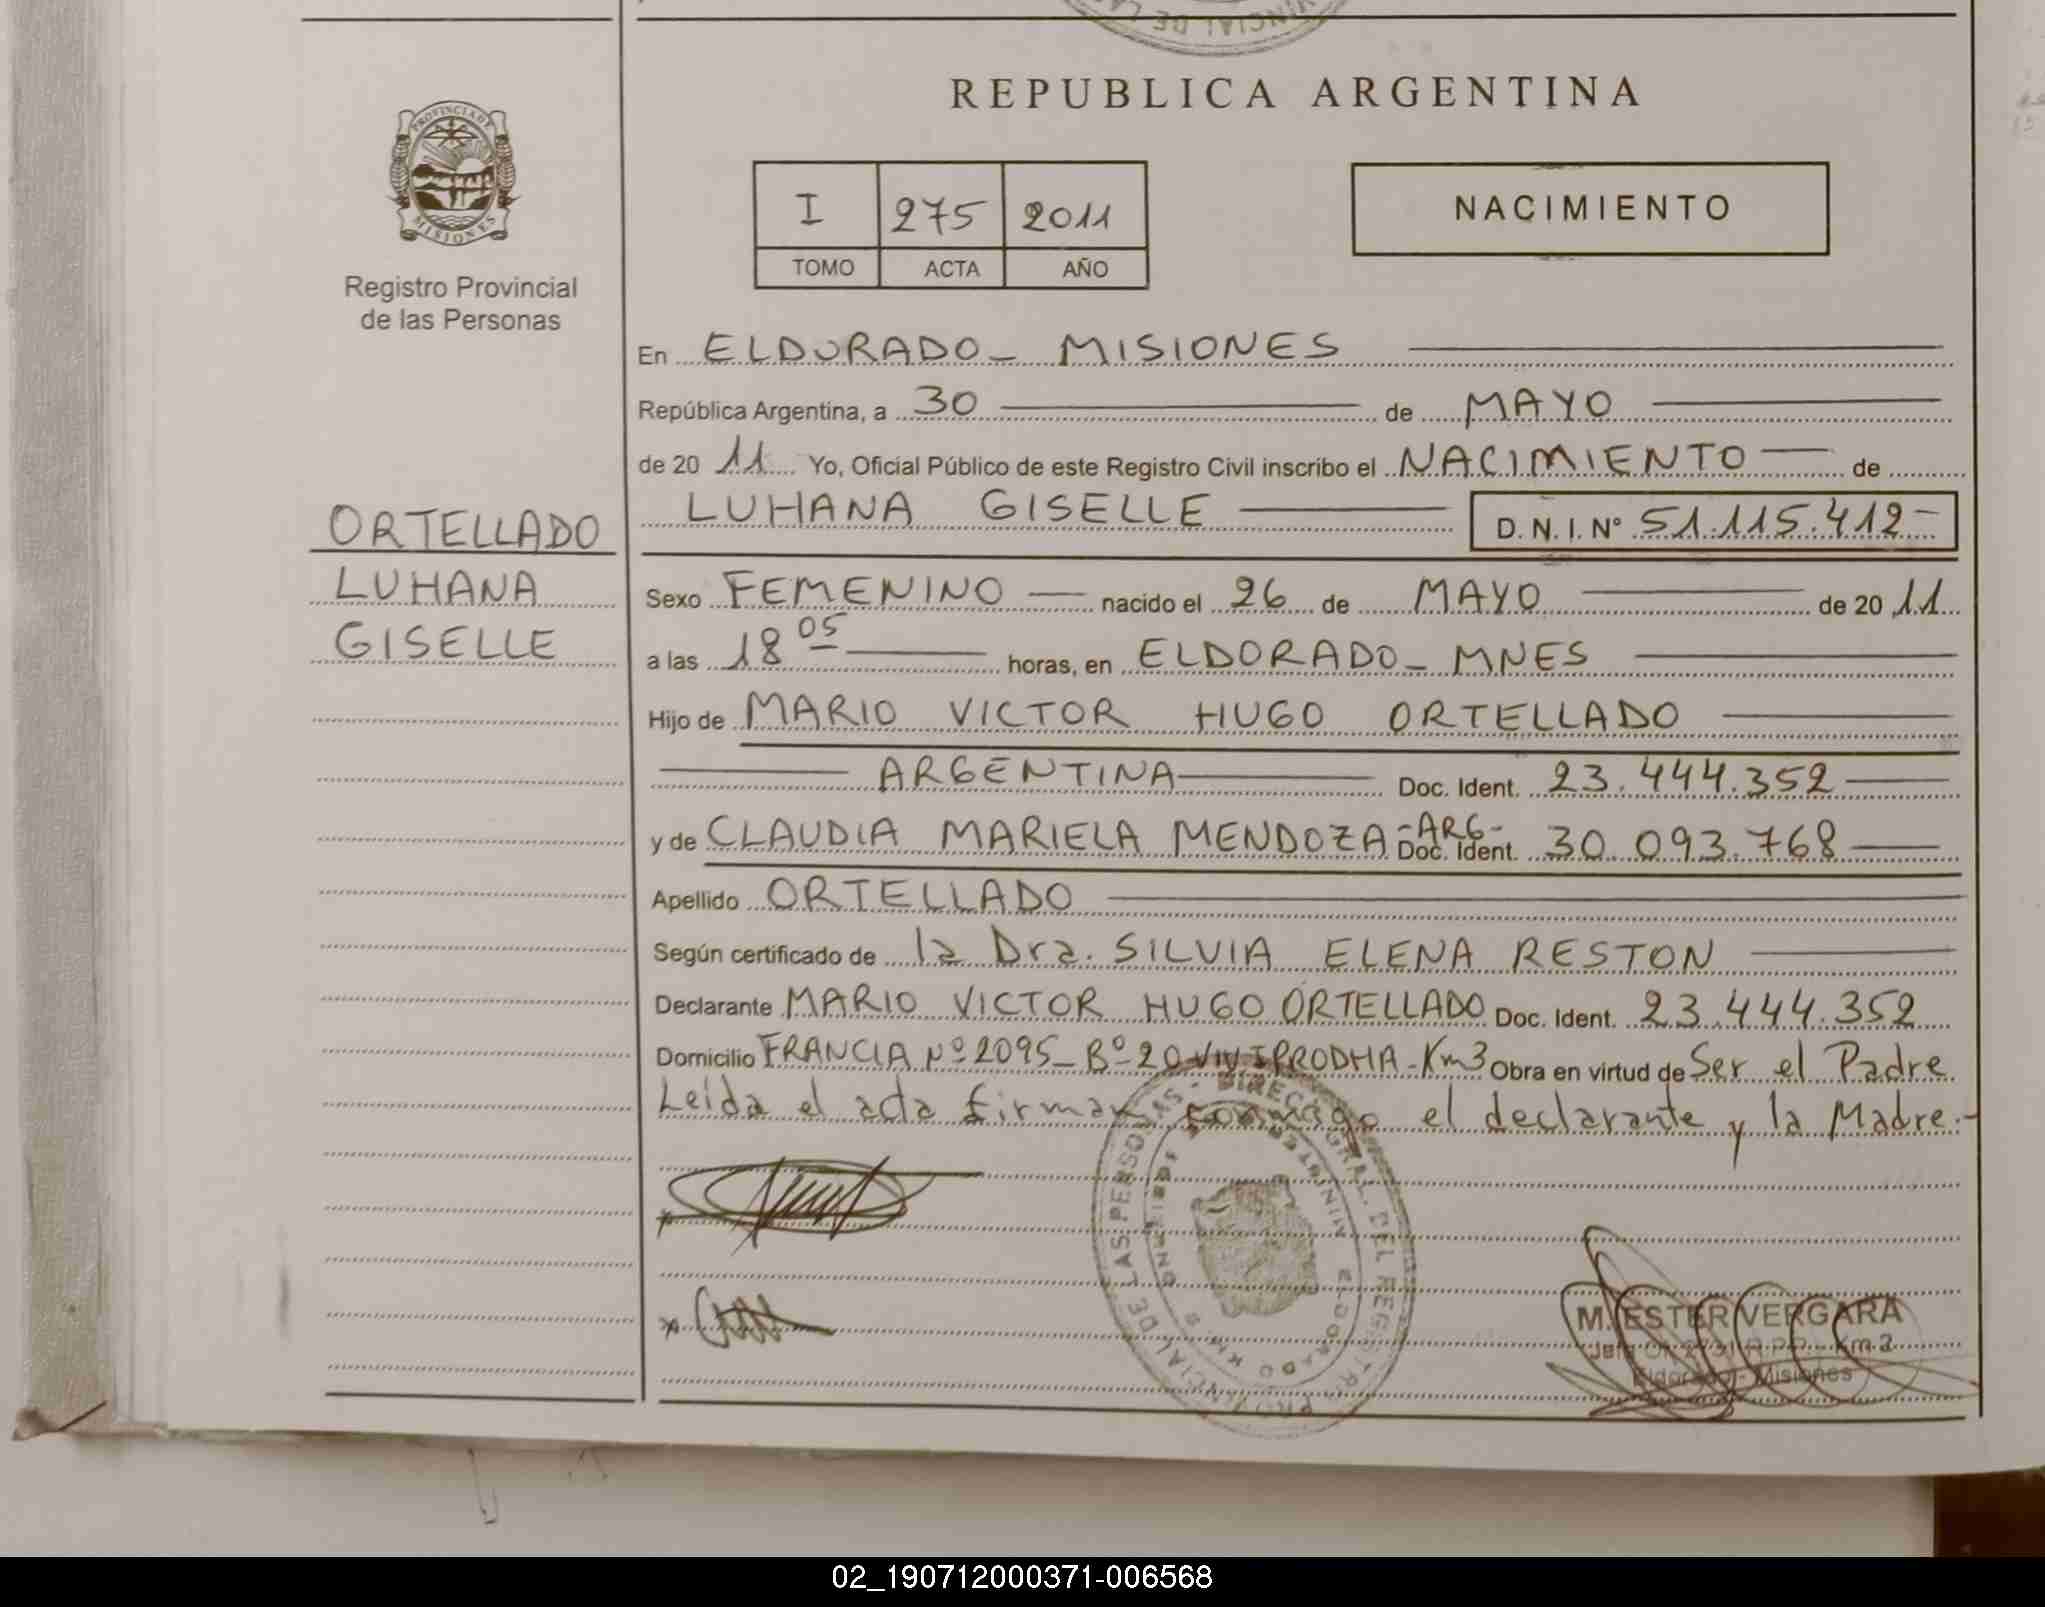 REPUBLICA ARGENTINA
PROVINCIA DE
MISIONES
Registro Provincial
de las Personas
I 275 2011
TOMO ACTA AÑO
NACIMIENTO
En ELDORADO - MISIONES
República Argentina, a 30 de MAYO
de 20 11 Yo, Oficial Público de este Registro Civil inscribo el NACIMIENTO de
LUHANA GISELLE D. N. I. N° 51.115.412-
ORTELLADO
LUHANA
GISELLE
Sexo FEMENINO nacido el 26 de MAYO de 20 11
a las 18 05 horas, en ELDORADO - MNES
Hijo de MARIO VICTOR HUGO ORTELLADO
ARGENTINA Doc. Ident. 23.444.352
y de CLAUDIA MARIELA MENDOZA -ARG- Doc. Ident. 30.093.768
Apellido ORTELLADO
Según certificado de la Dra. SILVIA ELENA RESTON
Declarante MARIO VICTOR HUGO ORTELLADO Doc. Ident. 23.444.352
Domicilio FRANCIA Nº 2095 - Bº 20 VIV IPRODHA - Km 3 Obra en virtud de Ser el Padre
Leída el acta firman conmigo el declarante y la Madre.-
M. ESTER VERGARA
Km 3
Eldorado - Misiones
02_190712000371-006568